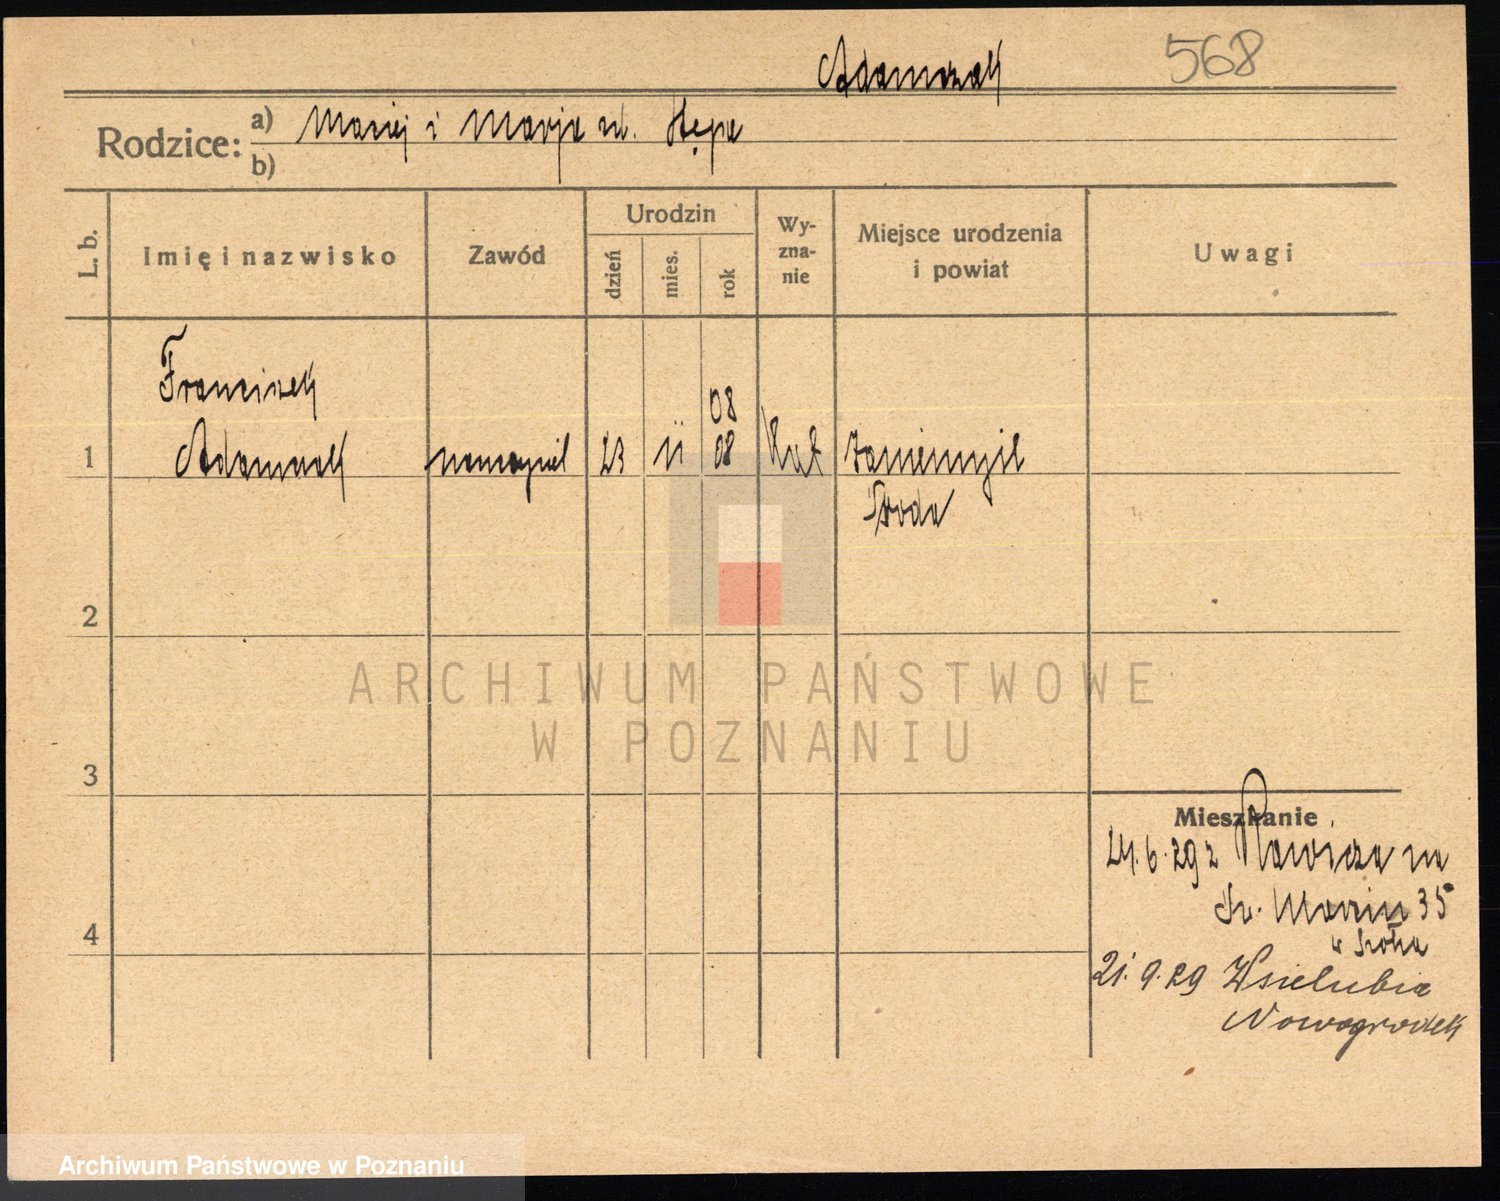 Adamczak 568
Rodzice: a) Maciej i Marja ur. Stępa
b)
L. b. Imię i nazwisko Zawód Urodzin dzień mies. rok Wy-zna-nie Miejsce urodzenia i powiat Uwagi
Franciszek
08
1 Adamczak nauczyciel 23 11 08 kat Zaniemyśl
Środa
2
ARCHIWUM PAŃSTWOWE
W POZNANIU
3
Mieszkanie
24.6.29 z Rawicza na
Św. Marcin 35
4
21.9.29 Wsielubie
Nowogródek
Archiwum Państwowe w Poznaniu